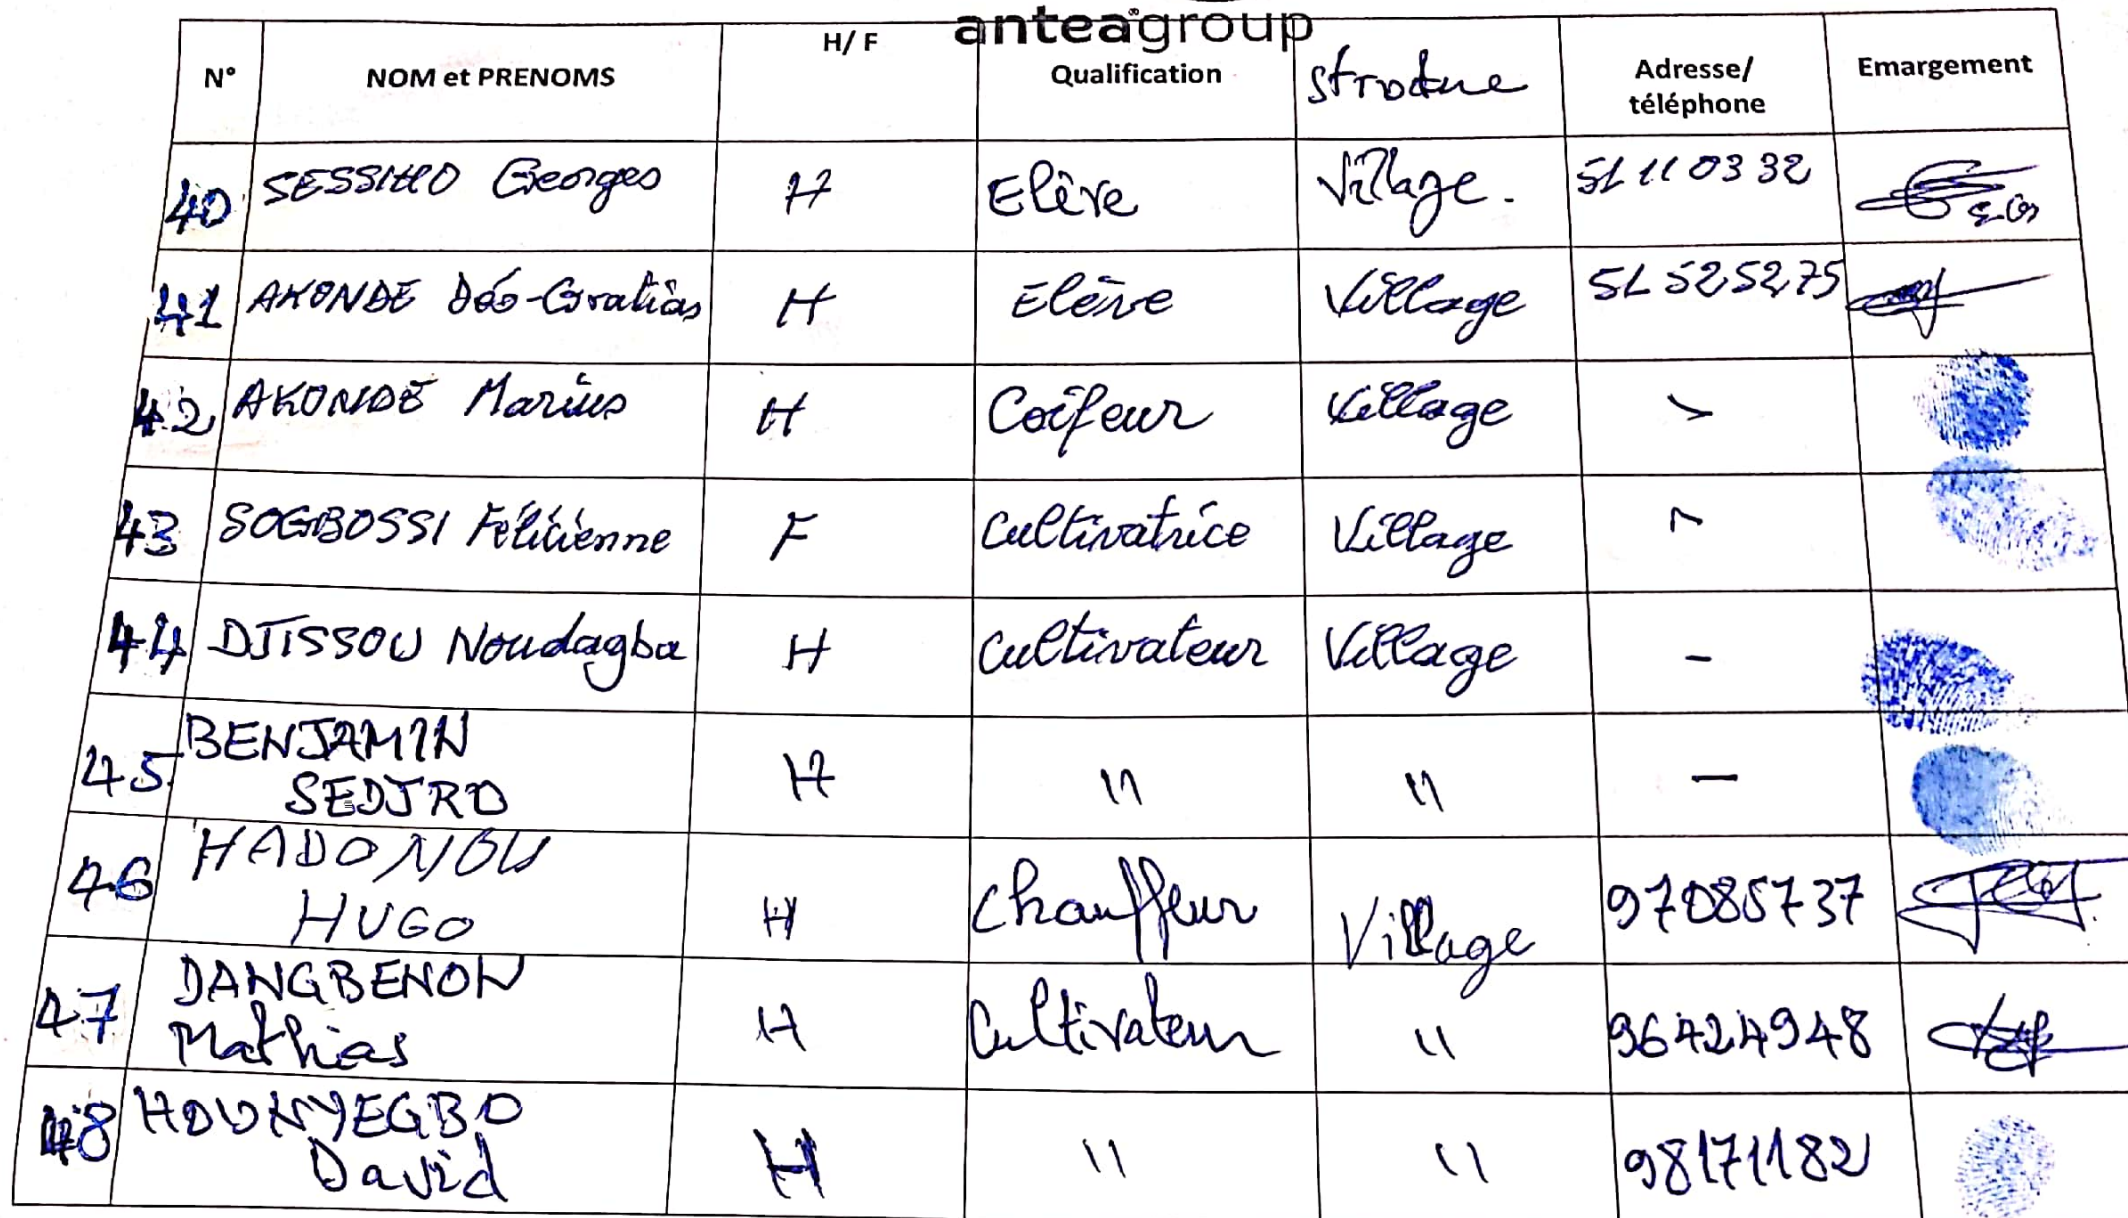 anteagroup
N° NOM et PRENOMS H/ F Qualification Structure Adresse/ téléphone Emargement
40 SESSIHO Georges H Elève Village. 51 11 03 32
41 AKONDE Déo-Gratias H Elève Village 51 52 52 75
42 AKONDE Marius H Coifeur Village
43 SOGBOSSI Félicienne F Cultivatrice Village
44 DJISSOU Noudagba H Cultivateur Village -
45 BENJAMIN
SEDJRO H " " —
46 HADONOU
HUGO H Chauffeur Village 97085737
47 DANGBENON
Mathias H Cultivateur " 96424948
48 HOUNYEGBO
David H " " 98171182